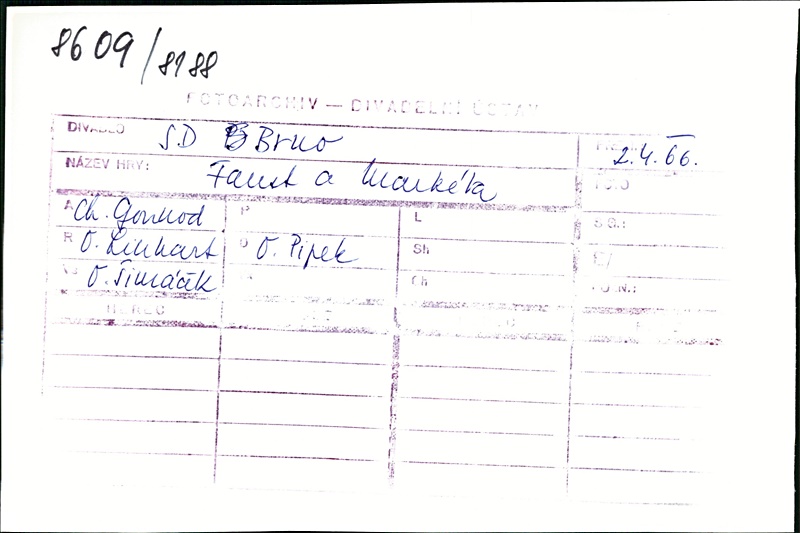 8609/8188
FOTOARCHIV — DIVADELNÍ ÚSTAV
DIVADLO SD Brno 2.4.66.
NÁZEV HRY: Faust a Markéta
A Ch. Gounod L
R O. Linhart O. Pipek Sh
O. Šimáček Ch
HEREC